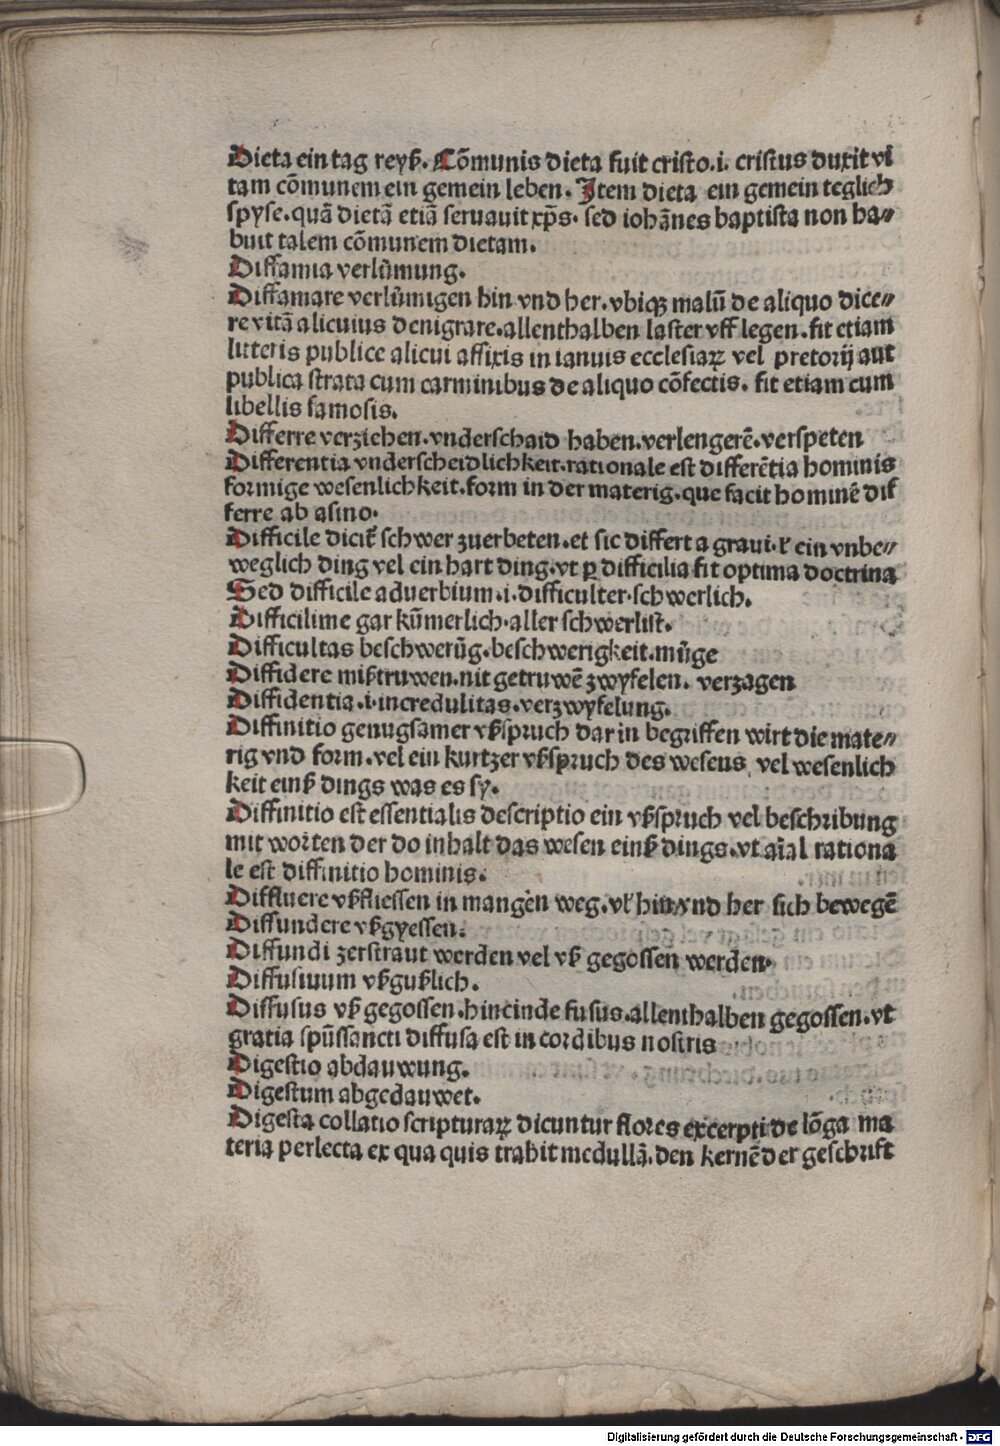 Dieta ein tag reyß. Cõmunis dieta fuit cristo .i. cristus duxit vi
tam cõmunem ein gemein leben. Item dieta ein gemein teglich
spyse. quã dietã etiã seruauit xp̃s. sed iohãnes baptista non ha⸗
buit talem cõmunem dietam.
Diffamia verlümung.
Diffamare verlümigen hin vnd her. vbiqꝫ malũ de aliquo dice⸗
re vitã alicuius denigrare. allenthalben laster vff legen. fit etiam
litteris publice alicui affixis in ianuis ecclesiaꝝ vel pretorij aut
publica strata cum carminibus de aliquo cõfectis. fit etiam cum
libellis famosis.
Differre verziehen. vnderschaid haben. verlengerẽ. verspeten
Differentia vnderscheidlichkeit. rationale est differẽtia hominis
formige wesenlichkeit. form in der materig. que facit hominẽ dif
ferre ab asino.
Difficile dicit̃ schwer zuerbeten. et sic differt a graui. ł ein vnbe⸗
weglich ding vel ein hart ding. vt ꝑ difficilia fit optima doctrina
Sed difficile aduerbium .i. difficulter. schwerlich.
Difficilime gar kümerlich. aller schwerlist.
Difficultas beschwerũg. beschwerigkeit. müge
Diffidere mißtruwen. nit getruwẽ zwyfelen. verzagen
Diffidentia .i. incredulitas. verzwyfelung.
Diffinitio genugsamer vßspruch dar in begriffen wirt die mate⸗
rig vnd form. vel ein kurtzer vßspruch des wesens, vel wesenlich
keit einß dings was es sy.
Diffinitio est essentialis descriptio ein vßspruch vel beschribung
mit worten der do inhalt das wesen einß dings. vt aĩal rationa
le est diffinitio hominis.
Diffluere vßfliessen in mangen weg. vł hin vnd her sich bewegẽ
Diffundere vßgyessen.
Diffundi zerstraut werden vel vß gegossen werden.
Diffusiuum vßgußlich.
Diffusus vß gegossen. hincinde fusus. allenthalben gegossen. vt
gratia spũssancti diffusa est in cordibus nostris
Digestio abdauwung.
Digestum abgedauwet.
Digesta collatio scripturaꝝ dicuntur flores excerpti de lõga ma
teria perlecta ex qua quis trahit medullã. den kernẽ der geschrift
Digitalisierung gefördert durch die Deutsche Forschungsgemeinschaft - DFG